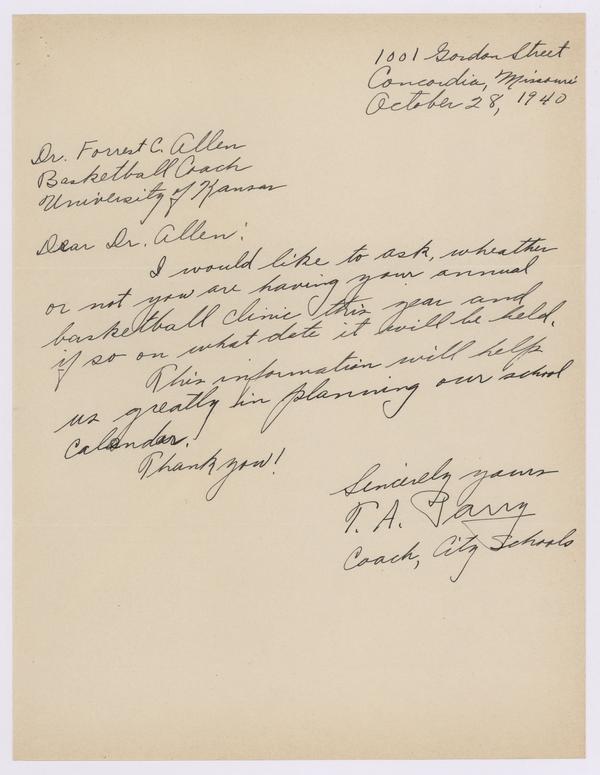 1001 Gordon Street
Concordia, Missouri
October 28, 1940
Dr. Forrest C. Allen
Basketball Coach
University of Kansas
Dear Dr. Allen:
I would like to ask, wheather
or not you are having your annual
basketball clinic this year and
if so on what date it will be held.
This information will help
us greatly in planning our school
calendar.
Thank you!
Sincerely yours
T. A. Parry
Coach, City Schools